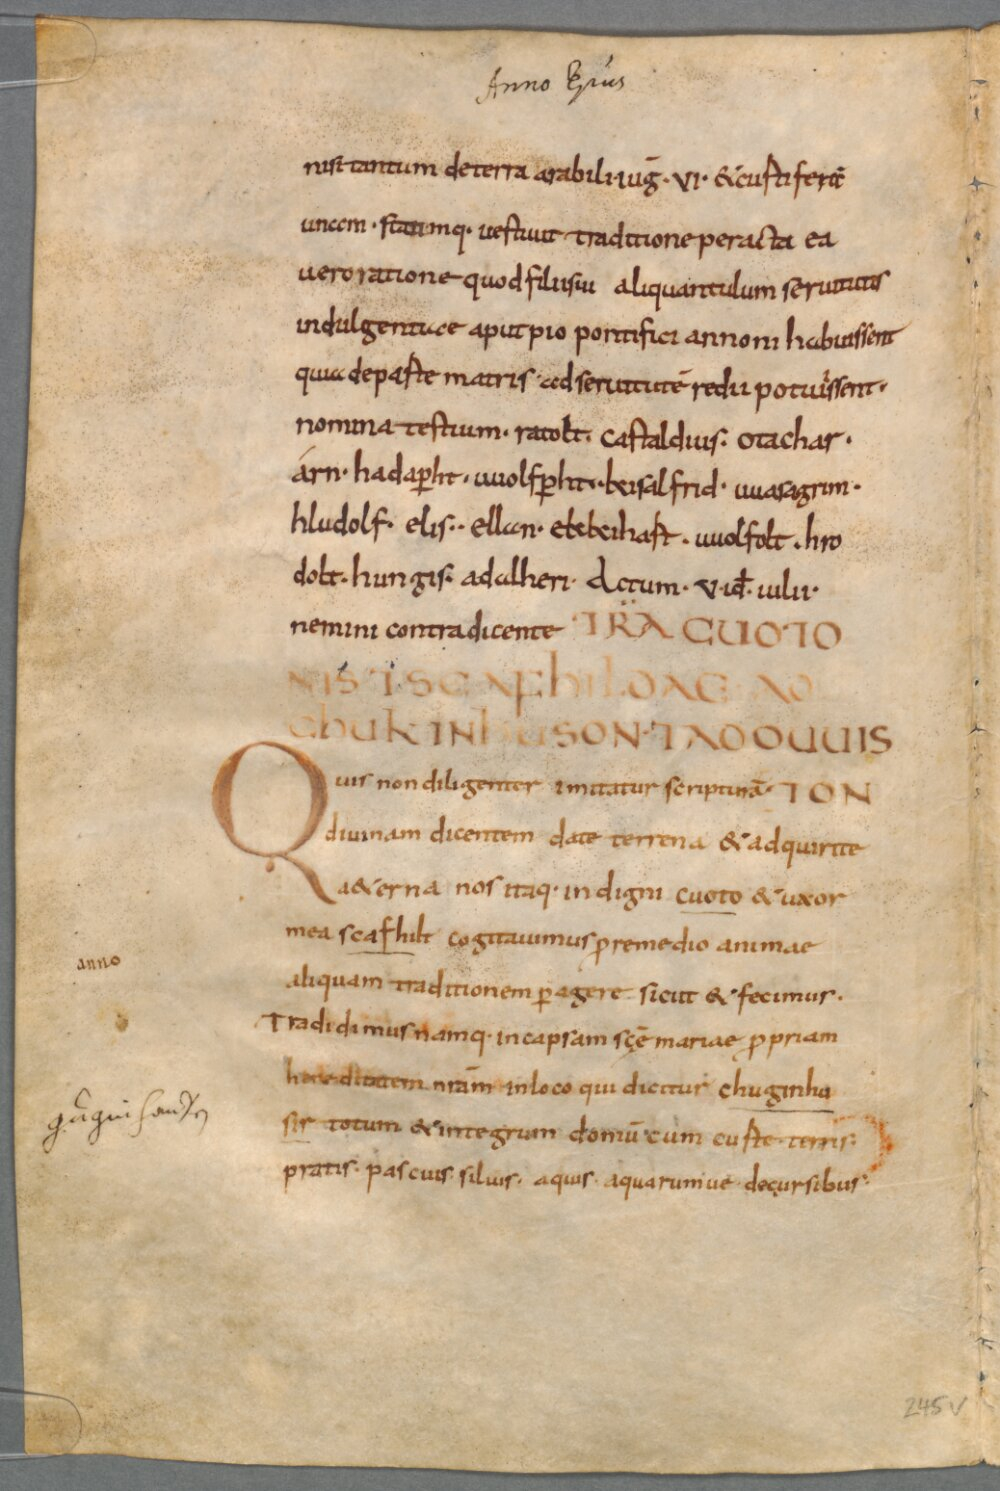 Anno Ep̄us
nisi tantum de terra arabili·iuḡ·VI· & custiferā
uncem·statimq· uestiuit traditione peracta ea
uero ratione quod filii siu aliquantulum seruitutis
indulgentiae aput pio pontifici annoni habuissent
quia de paste matris ad seruitutē redii potuissent·
nomina testium· ratolt· castaldius· otachar·
árn· hadaꝑht· uuolfꝑht· beisalfrid· uuasagrim·
hludolf· elis·· ellan· eteberhaft· uuolfolt· hro
dolt· hungis· adalheri Actum· V·id· iulii·
nemini contradicente TRA CUOTO
NIS ⁊ SCAFhILDAE AD
ChUKINhUSON·TADOUUIS
Quis non diligenter imitatur scripturā· TON
diuinam dicentem date terrena & adquirite
a&erna nos itaq· indigni cuoto & uxor
mea scafhilt cogitauimus ꝓ remedio animae
aliquam traditionem ꝑagere sicut & fecimus·
Tradidimus namq· in capsam scē mariae ꝓpriam
hereditatem nrām in loco qui dicitur chuginhu
anno
sir totum & integrum domū cum custe· terris·
guginhausen
pratis· pascuis siluis· aquis· aquarumue decursibus·
245v